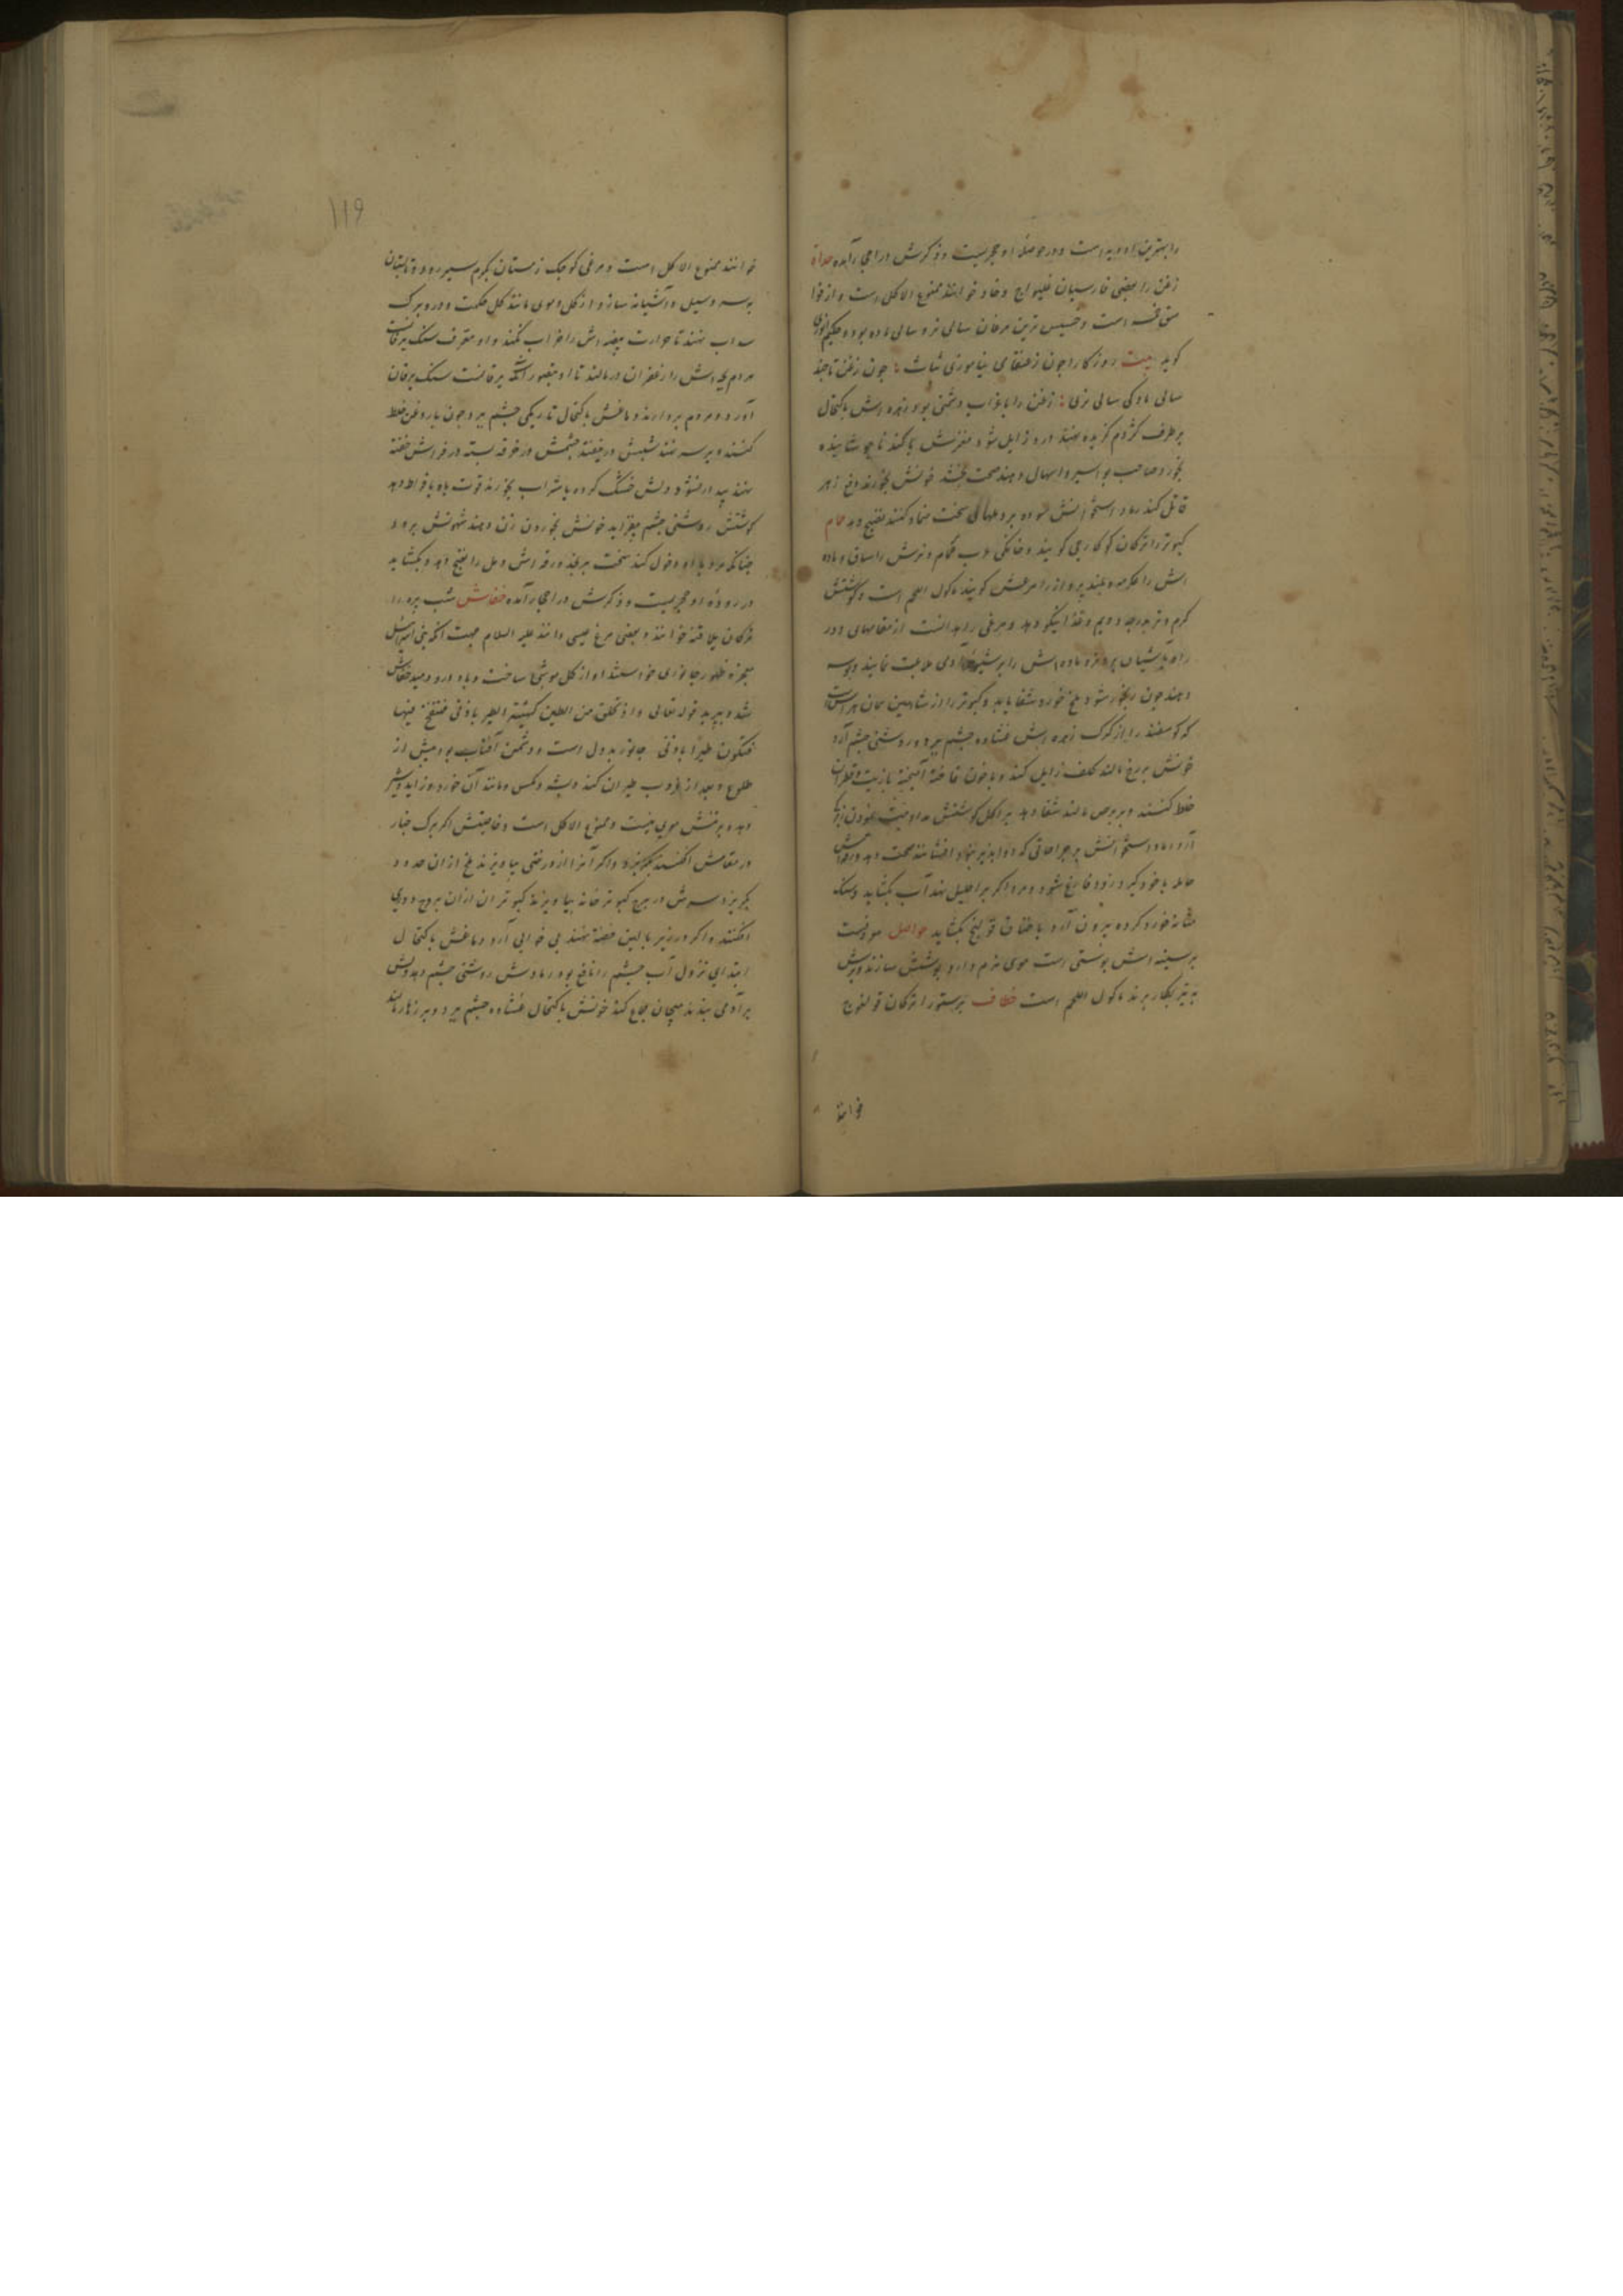 را بهترین ادویه است و در حوصلهٔ او حجریست و ذکرش در احجار آمده حداة
زغن را بعضی فارسیان غلیواج و خاد خوانند ممنوع الاکل است و از فوا
سق خمسه است و خسیس ترین مرغان سالی نر و سالی ماده بود و حکیم انوری
کوید بیت روزکارا چون ز عنقا می نیاموزی ثبات چون زغن تا چند
سالی مادکی سالی نری زغن را با غراب دشمنی بود زهره اش باکتحال
بر طرف کژدم کزیده نهند درد زایل شود مغزش
بخورد صاحب بواسیر و اسهال دهند صحت بخشد خونش بخورند دفع زهر
قاتل کند رماد استخوانش سوده بر دملهای سخت ضماد کنند نضج دهد حمام
کبوتر را ترکان کوکارجی کویند و خانکی نرش را ساق و ماده
اش را عکرمه و بلند پرواز را مرعش کویند ماکول اللحم است و کوشتش
کرم و تر بدرجهٔ دویم و غذا نیکو دهد و مرغی راهدانست از مقامهای دور
راه بآشیان برد نر و ماده اش را بر شیوهٔ آدمی ملاعبت نمایند و بوسه
دهند چون رنجور شود ملخ خورد شفا یابد و کبوتر را از شاهین همان هراس است
که کوسفند را از کرک زهره اش غشاوه چشم ببرد و روشنی چشم آرد
خونش بر رخ مالند کلف زایل کند و با خون فاخته آمیخته با زیت و قطران
خلط کنند و بر برص مالند شفا دهد بر اکل کوشتش مداومت نمودن
آرد رماد استخوانش بر جراحاتی که دوا پذیر نبود افشانند صحت دهد
حامله با خود کیرد زود فارغ شود و مرد اکر بر احلیل نهد آب بکشاید و سنک
مثانه خورد کرده بیرون آرد با قولنج بکشاید حواصل معروفست
بر سینه اش پوستی است موی نرم دارد پوشش سازند و پرش
به تیر بکار برند ماکول اللحم است خطاف پرستو را ترکان قولغوج
خوانند
119
خوانند ممنوع الاکل است و مرغی کوچک زمستان بکرم سیر رود و تابستان
به سردسیل و آشیانه سازد از کل و موی مانند کل حکمت و در و برک
سداب نهند تا حرارت بیضه اش را خراب نکند و او معرف سنک یرقانست
مردم بچه اش را زعفران درمالند تا او بتصور آنکه یرقانست سنک یرقان
آورد و مردم بردارند دماغش باکتحال تاریکی چشم ببرد چون با روغن خلط
کنند و بر سر نهند شپش در خرقه بسته در فراش خفته
نهند بیدار نشود دلش خشک کرده با شراب بخورند قوت باه بافراط دهد
کوشتش روشنی چشم بیفزاید خونش بخورد زن دهند شهوتش ببرد
چنانکه مرد با او دخول کند سخت برنجد ورقه اش دمل را نضج دهد و بکشاید
در رودهٔ او حجریست و ذکرش در احجار آمده خفاش شب پره را
ترکان خوانند و بعضی مرغ عیسی دانند علیه السلام جهت آنکه بنی اسرائیل
بمعجزه ظهور جانوری خواستند او از کل موشی ساخت و باد درو دمید خفاش
شد و بپرید قوله تعالی و اذ تخلق من الطین کهیئة الطیر باذنی فتنفخ فیها
فتکون طیرا باذنی جانور بد دل است و دشمن آفتاب بود پیش از
طلوع و بعد از غروب طیران کند و پشه و مکس و مانند آن خورد و زاید و شیر
دهد و بر تنش موی نیست و ممنوع الاکل است و خاصیتش اکر برک چنار
در مقامش افکنند بکریزد و اکر آنرا از درختی بیاویزند ملخ از ان حدود
بکریزد سرش در برج کبوتر خانه بیاویزند کبوتران از ان برج دوری
نکنند و اکر در زیر بالین خفته نهند بی خوابی آرد دماغش باکتحال
ابتدای نزول آب چشم را نافع بود رمادش روشنی چشم دهد دلش
بر آدمی بندند هیجان جماع کند خونش باکتحال غشاوه چشم ببرد و بر زهار مالند